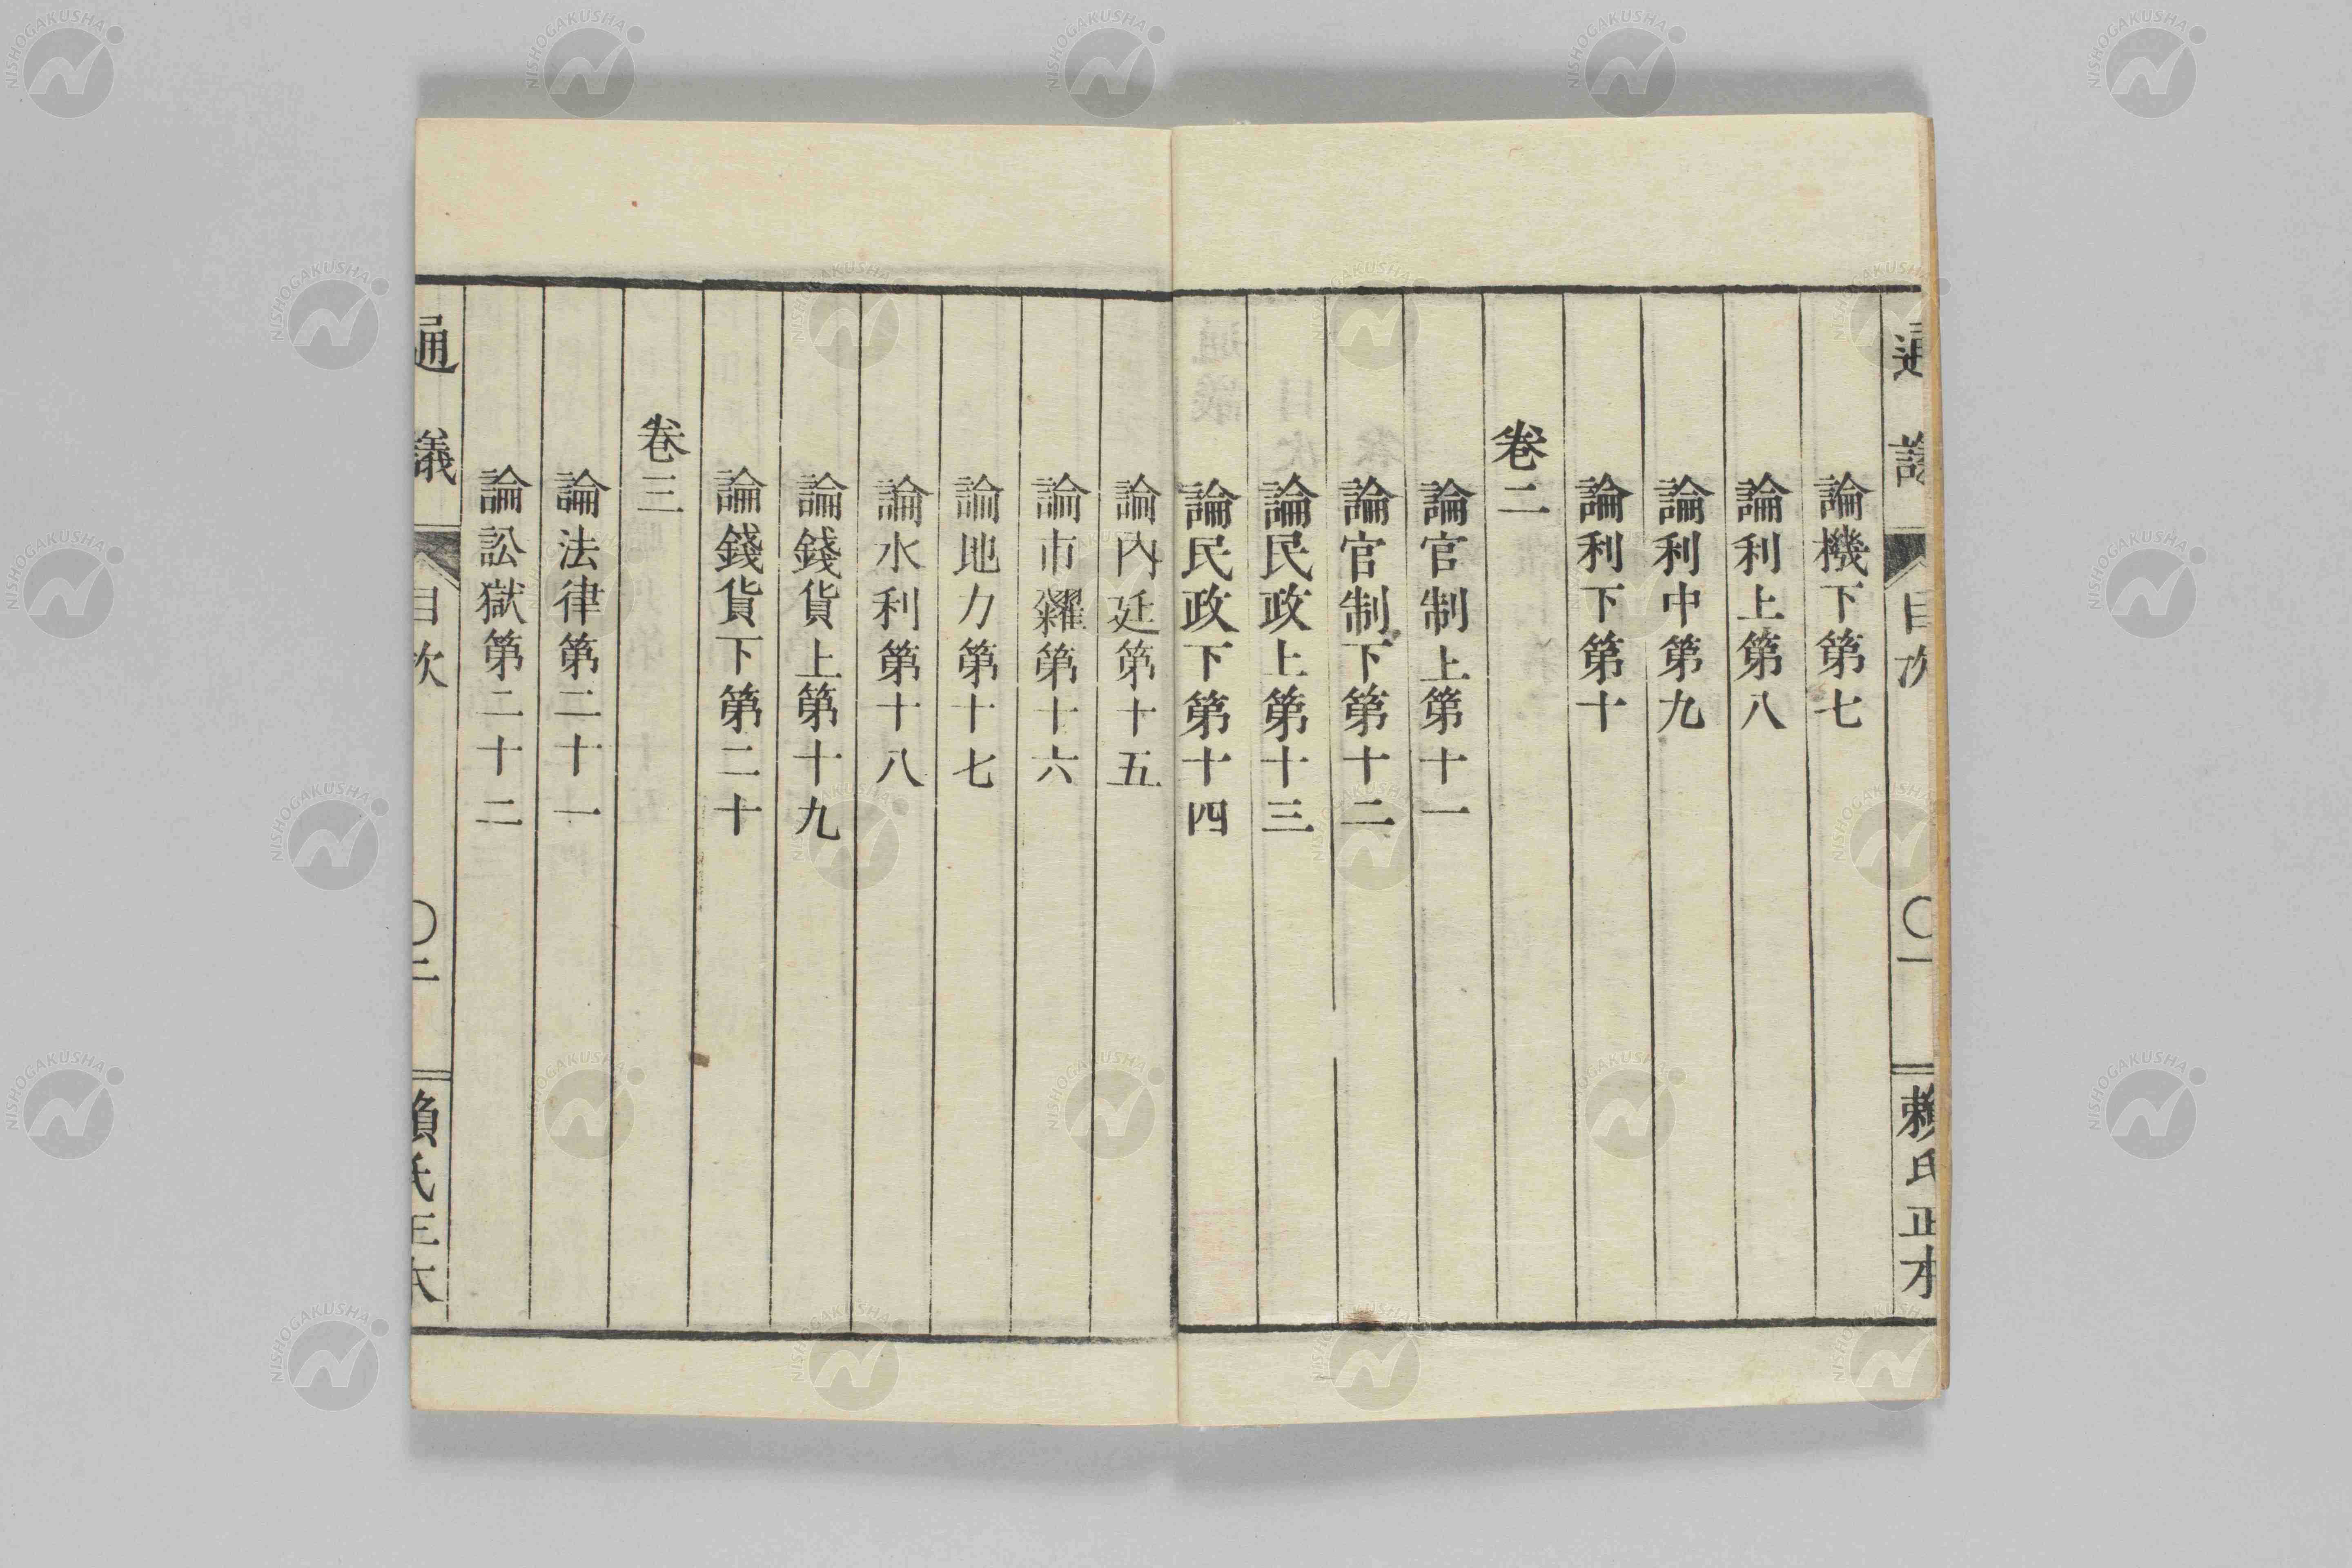 通議 目次 〇一 賴氏正本
論機下第七
論利上第八
論利中第九
論利下第十
卷二
論官制上第十一
論官制下第十二
論民政上第十三
論民政下第十四
論內廷第十五
論市糴第十六
論地力第十七
論水利第十八
論錢貨上第十九
論錢貨下第二十
卷三
論法律第二十一
論訟獄第二十二
通議 目次 〇二 賴氏正本
NISHOGAKUSHA